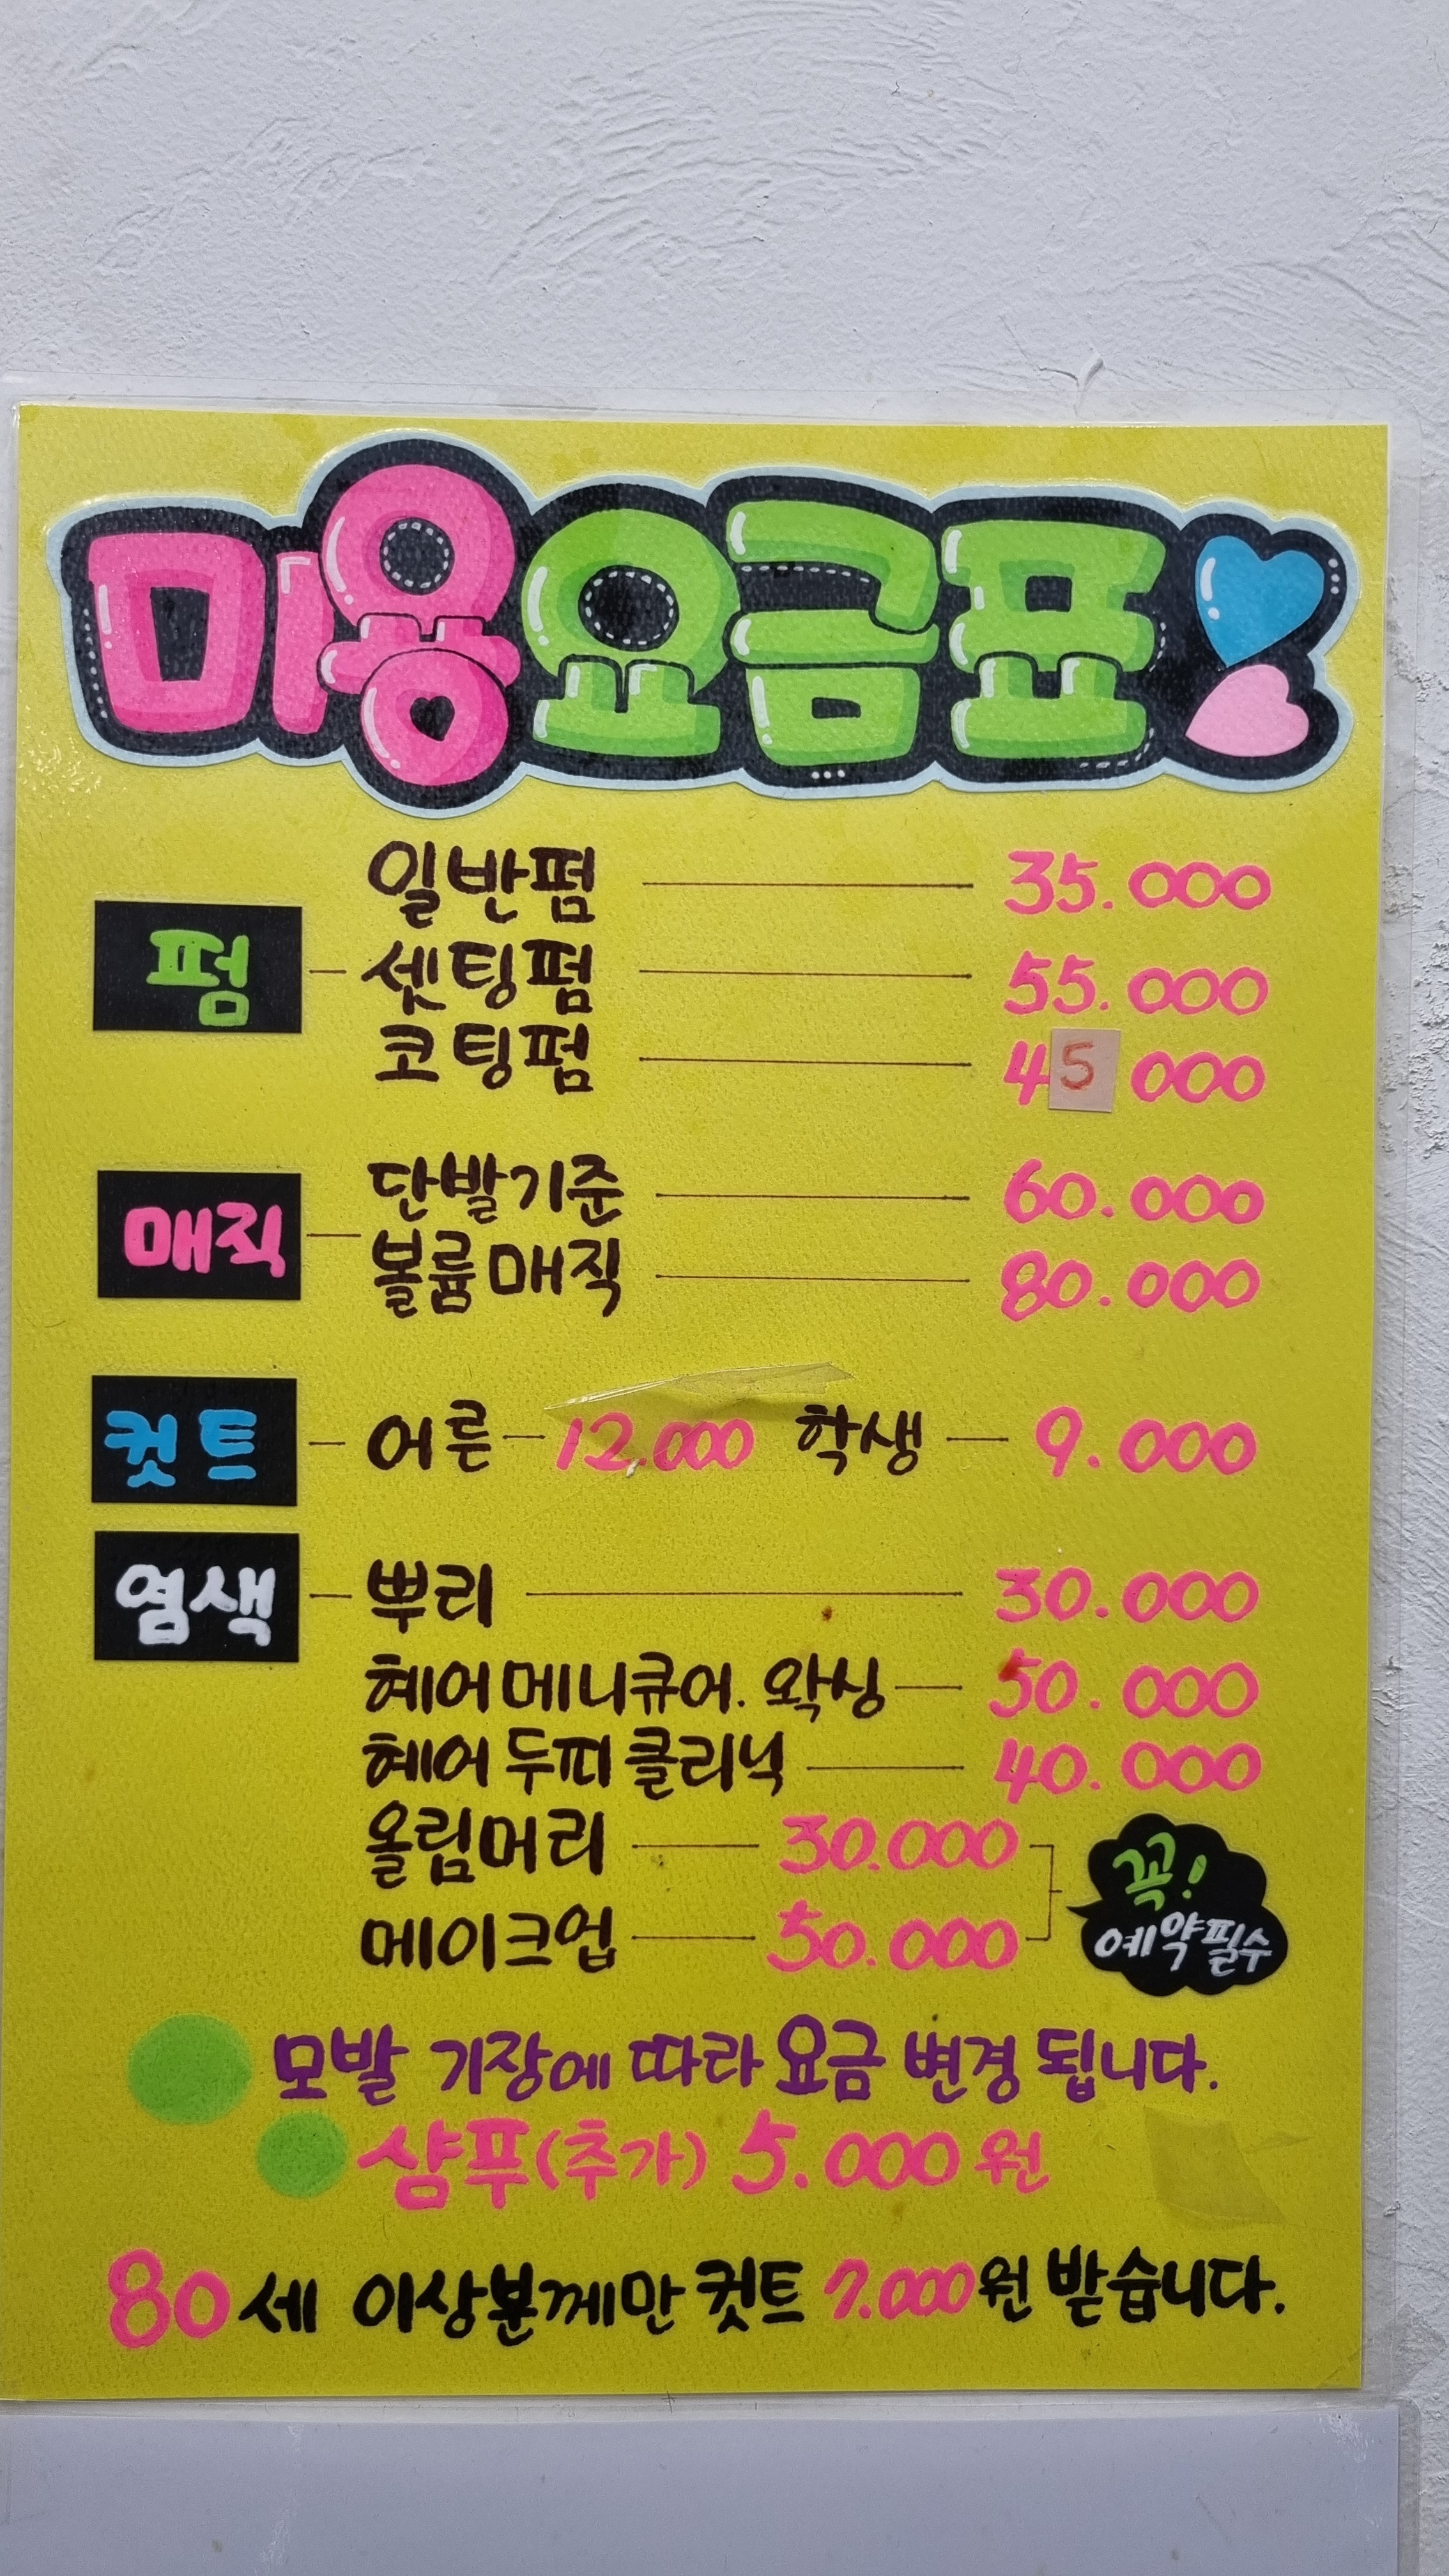 미용요금표
일반펌 35.000
펌 셋팅펌 55.000
코팅펌 45 000
단발기준 60.000
매직
볼륨매직 80.000
컷트 어른 12.000 학생 9.000
염색 뿌리 30.000
헤어메니큐어. 왁싱 50.000
헤어 두피 클리닉 40.000
올림머리 30.000
꼭!
메이크업 50.000
예약필수
모발 기장에 따라 요금 변경 됩니다.
샴푸(추가) 5.000 원
80세 이상분께만 컷트 7.000원 받습니다.